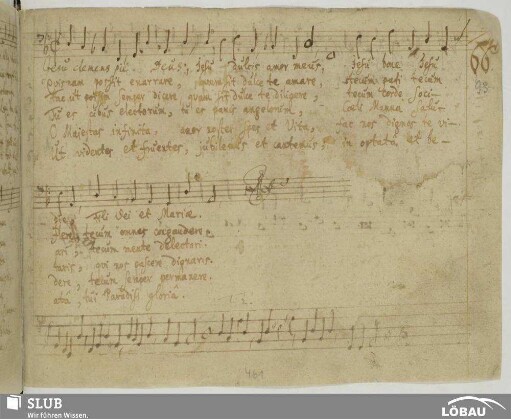 Jesu clemens pie Deus, Jesu dulcis amor meus, Jesu bone Jesu
quisnam possit enarrare, quam sit dulce te amare, tecum pati tecum
fac ut possim semper dicere, quam sit dulce te diligere, tecum corde soci-
Tu es cibus electorum, tu es panis angelorum, Coeli Manna salu-
O Majestas infinita, amor noster spes et Vita, fac nos dignos te vi-
Ut videntes et fruentes, jubilemus et cantemus, in optata et be-
66
93
pie, Fili Dei et Mariae.
flere, tecum omnes congaudere.
ari, tecum mente delectari.
taris, qui nos pascere dignaris.
dere, tecum semper permanere.
ata, tui Paradisi gloria.
SLUB
Wir führen Wissen.
LÖBAU